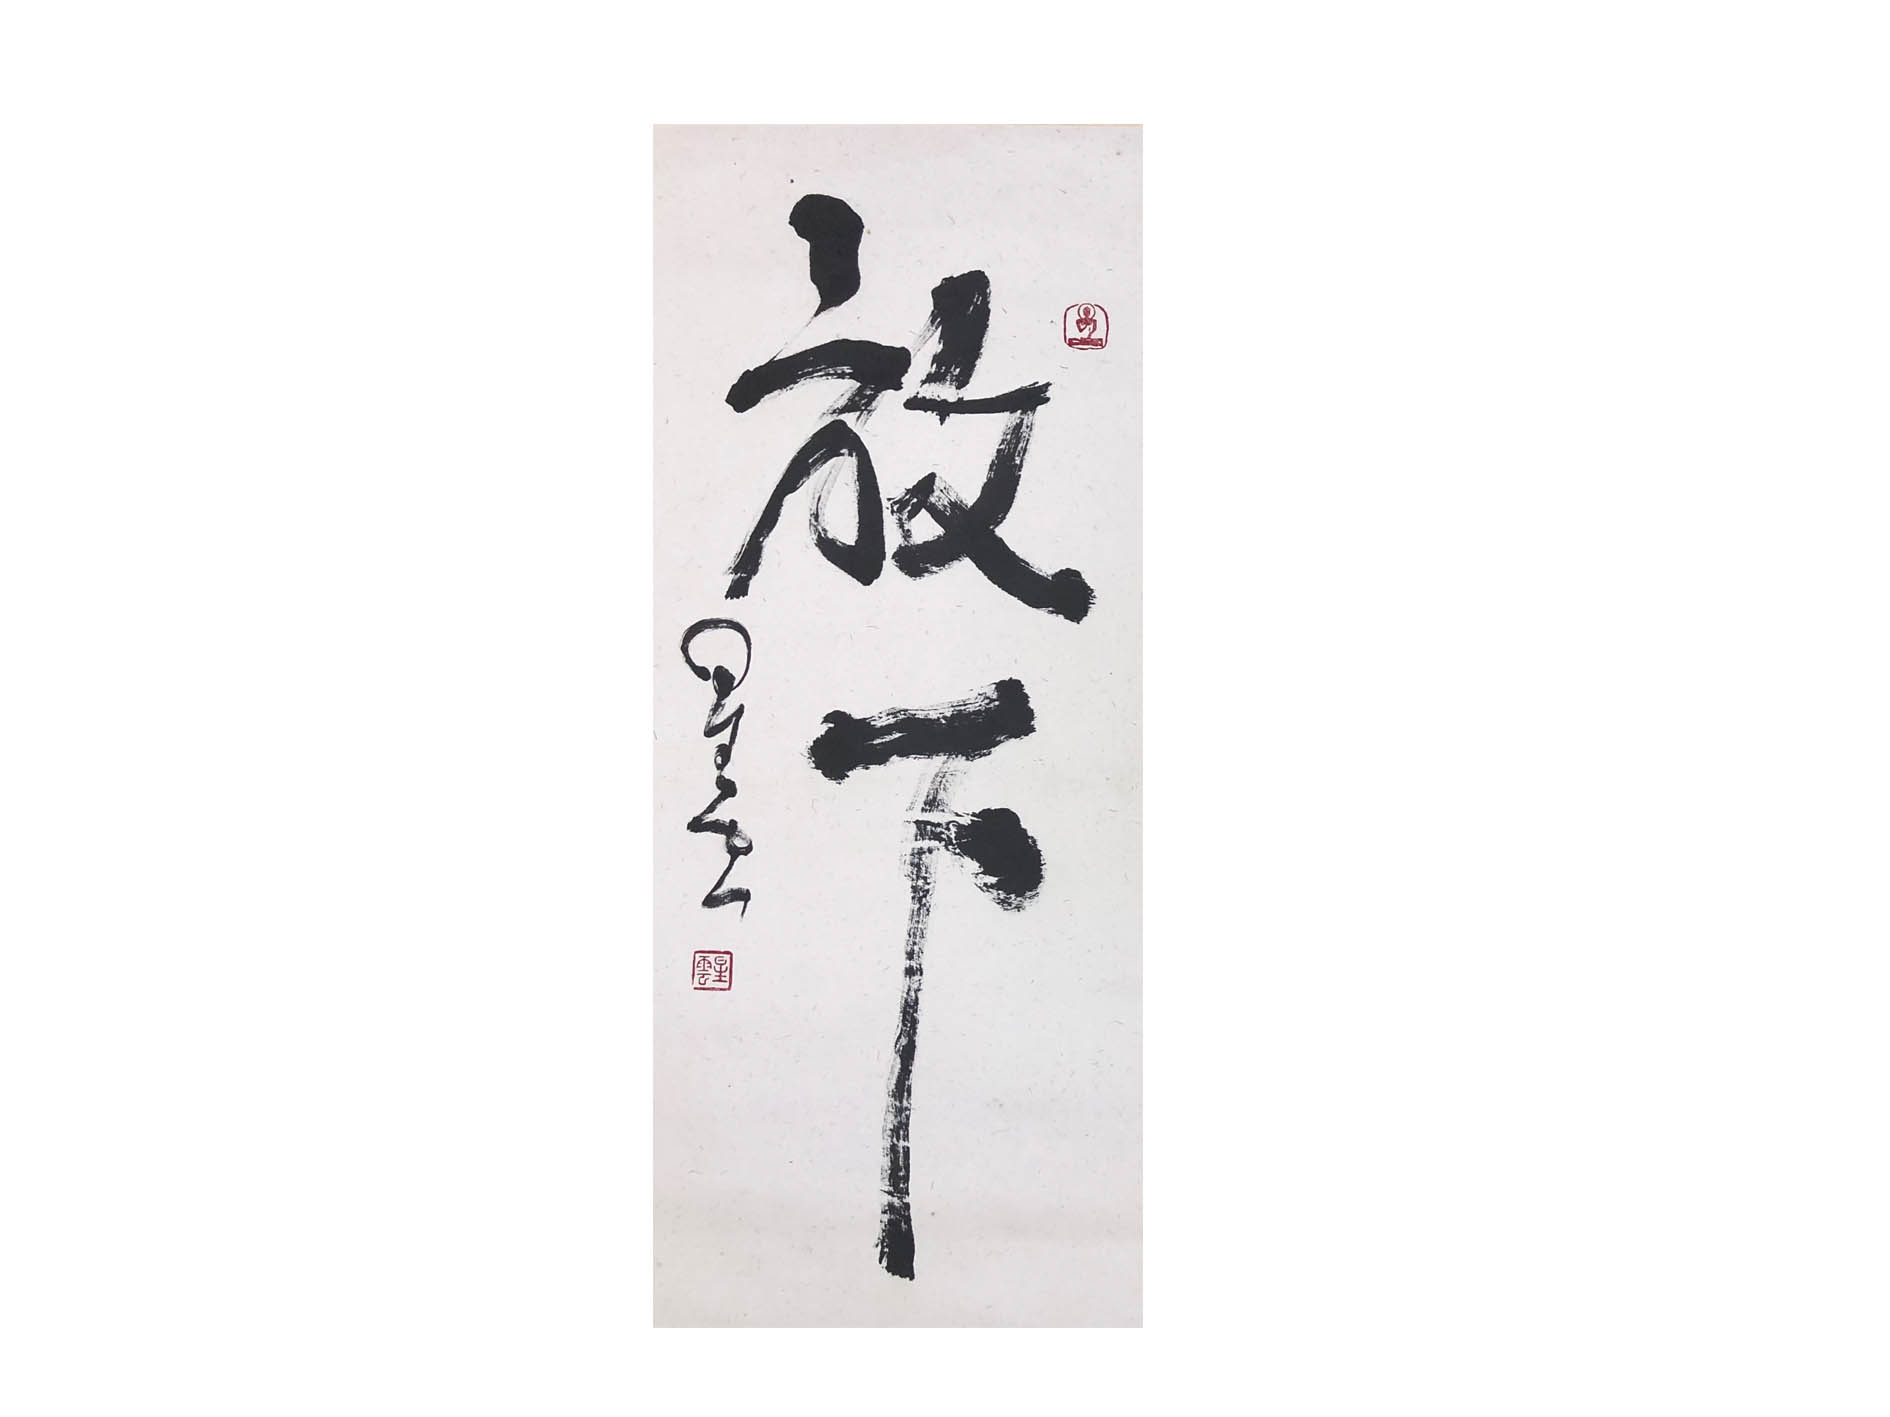 放下
星雲
星雲